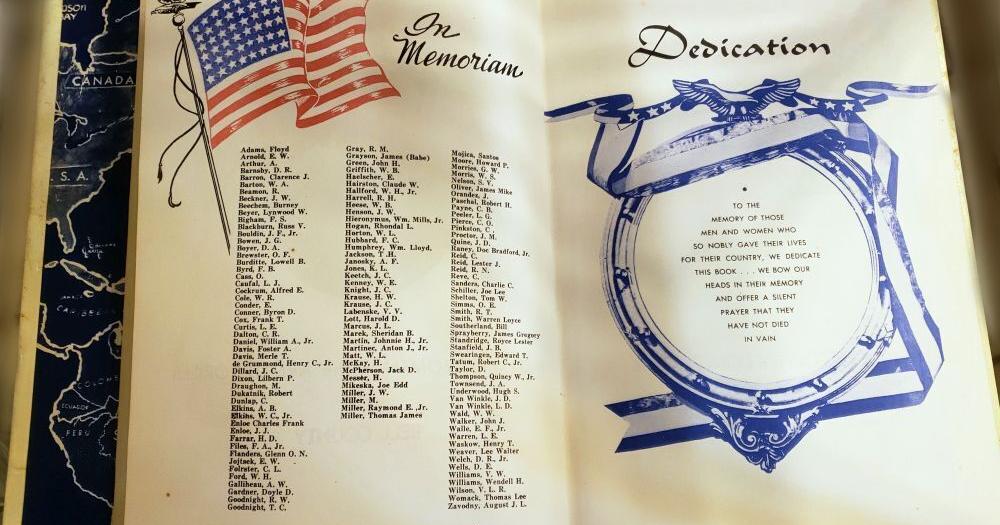 HUDSON
BAY
CANADA
U. S. A.
COLOMBIA
ECUADOR
PERU
In
Memoriam
Adams, Floyd
Arnold, E. W.
Arthur, A.
Barnsby, D. R.
Barron, Clarence J.
Barton, W. A.
Beamon, R.
Beckner, J. W.
Beechem, Burney
Beyer, Lynwood W.
Bigham, F. S.
Blackburn, Russ V.
Bouldin, J. F., Jr.
Bowen, J. G.
Boyer, D. A.
Brewster, O. F.
Burditte, Lowell B.
Byrd, F. B.
Cass, O.
Caufal, L. J.
Cockrum, Alfred E.
Cole, W. R.
Conder, E.
Conner, Byron D.
Cox, Frank T.
Curtis, L. E.
Dalton, C. R.
Daniel, William A., Jr.
Davis, Foster A.
Davis, Merle T.
de Grummond, Henry C., Jr.
Dillard, J. C.
Dixon, Lilbern P.
Draughon, M.
Dukatnik, Robert
Dunlap, C.
Elkins, A. B.
Elkins, W. C., Jr.
Enloe Charles Frank
Enloe, J. J.
Farrar, H. D.
Files, F. A., Jr.
Flanders, Glenn O. N.
Jojtsek, E. W.
Folrster, C. L.
Ford, W. H.
Galliheau, A. W.
Gardner, Doyle D.
Goodnight, R. W.
Goodnight, T. C.
Gray, R. M.
Grayson, James (Babe)
Green, John H.
Griffith, W. B.
Haelscher, E.
Hairston, Claude W.
Hallford, W. H., Jr.
Harrell, R. H.
Heese, W. B.
Henson, J. W.
Hieronymus, Wm. Mills, Jr.
Hogan, Rhondal L.
Horton, W. L.
Hubbard, F. C.
Humphrey, Wm. Lloyd,
Jackson, T.H.
Janosky, A. F.
Jones, K. L.
Keetch, J. C.
Kenney, W. E.
Knight, J. C.
Krause, H. W.
Krause, J. C.
Labenske, V. V.
Lott, Harold D.
Marcus, J. L.
Marek, Sheridan B.
Martin, Johnnie H., Jr.
Martinec, Anton J., Jr.
Matt, W. L.
McKay, H.
McPherson, Jack D.
Messer, H.
Mikeska, Joe Edd
Miller, J. W.
Miller, M.
Miller, Raymond E. Jr.
Miller, Thomas James
Mojica, Santos
Moore, Howard P.
Morries, G. W.
Morris, W. S.
Nelson, S. V.
Oliver, James Mike
Orandez, J.
Paschal, Robert H.
Payne, C. B.
Peeler, L. G.
Pierce, C. O.
Pinkston, C.
Proctor, J. M.
Quine, J. D.
Raney, Doc Bradford, Jr.
Reid, C.
Reid, Lester J.
Reid, R. N.
Reve, C.
Sanders, Charlie C.
Schiller, Joe Lee
Shelton, Tom W.
Simms, O. E.
Smith, R. T.
Smith, Warren Loyce
Southerland, Bill
Sprayberry, James Grogey
Standridge, Royce Lester
Stanfield, J. B.
Swearingen, Edward T.
Tatum, Robert C., Jr.
Taylor, D.
Thompson, Quincy W., Jr.
Townsend, J. A.
Underwood, Hugh S.
Van Winkle, J. D.
Van Winkle, L. D.
Wald, W. W.
Walker, John J.
Walle, E. F., Jr.
Warren, L. E.
Waskow, Henry T.
Weaver, Lee Walter
Welch, D. R., Jr.
Wells, D. E.
Williams, V. W.
Williams, Wendell H.
Wilson, V. L. R.
Womack, Thomas Lee
Zavodny, August J. L.
Dedication
TO THE
MEMORY OF THOSE
MEN AND WOMEN WHO
SO NOBLY GAVE THEIR LIVES
FOR THEIR COUNTRY, WE DEDICATE
THIS BOOK . . . WE BOW OUR
HEADS IN THEIR MEMORY
AND OFFER A SILENT
PRAYER THAT THEY
HAVE NOT DIED
IN VAIN